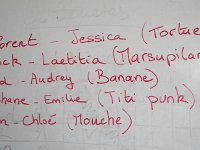 orent - Jessica (Tortue
ick - Laetitia (Marsupilam
d - Audrey (Banane)
hane - Emilie (Titi punk)
n - Chloé (Mouche)